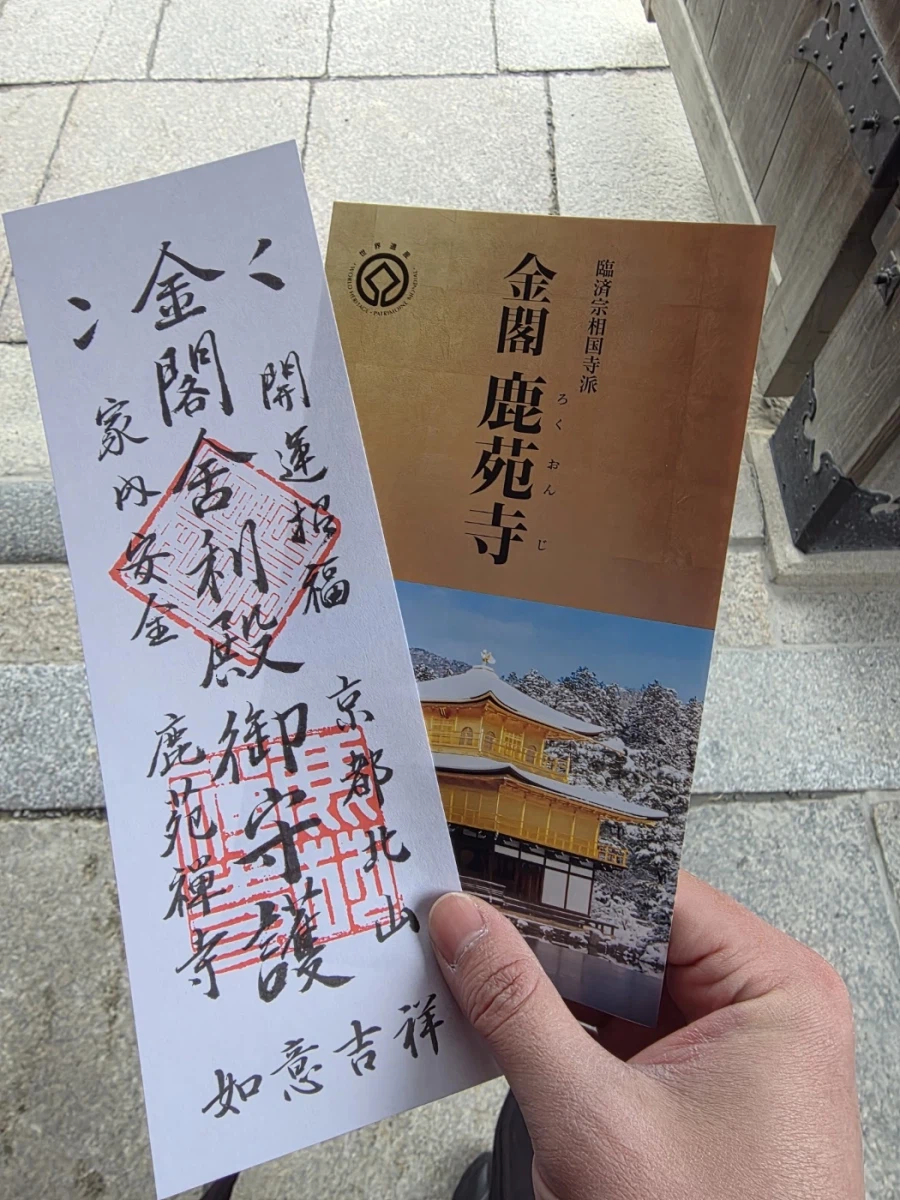 開運招福
金閣舎利殿御守護
家内安全
京都北山
鹿苑禅寺
如意吉祥
世界遺産
WORLD HERITAGE • PATRIMOINE MONDIAL
臨済宗相国寺派
金閣 鹿苑寺
ろくおんじ